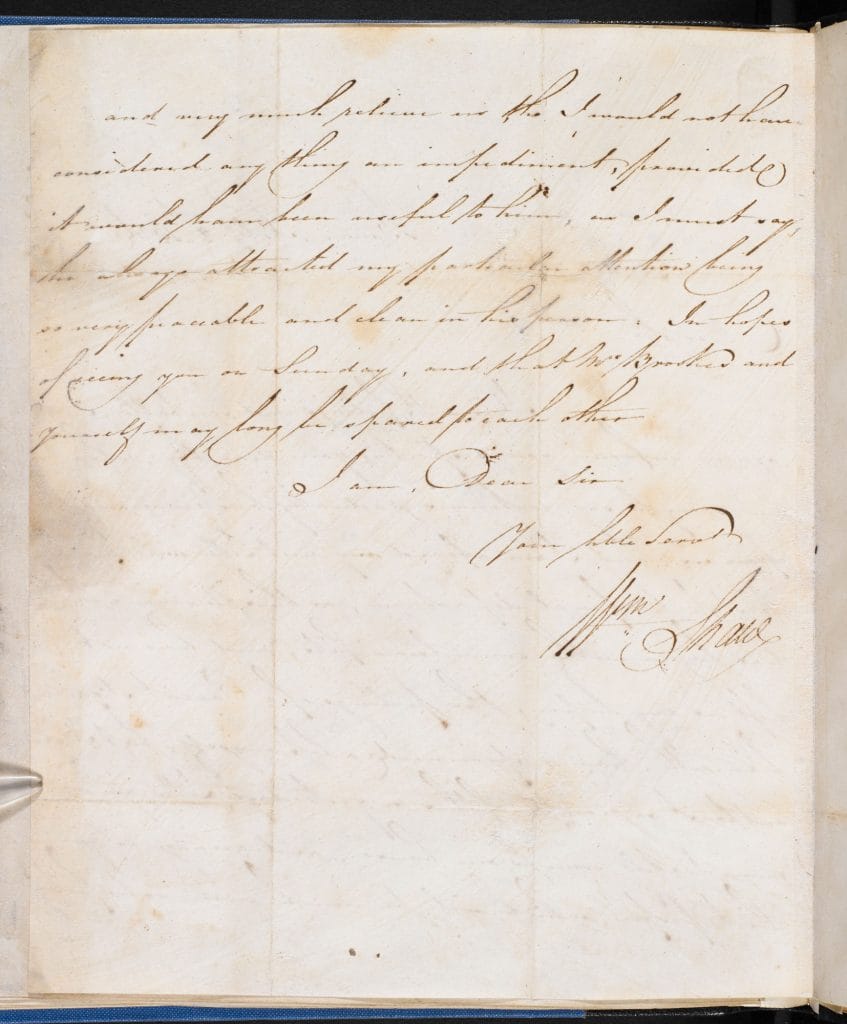 and very much relieve us, tho' I would not have
considered any thing an impediment, provided
it would have been useful to him, as I must say,
he always attracted my particular attention being
so very peaceable and clean in his person. In hopes
of seeing you on Sunday, and that Mrs. Brookes and
yourself may long be spared to each other
I am, Dear Sir
Your hble Servt
Wm Shaw